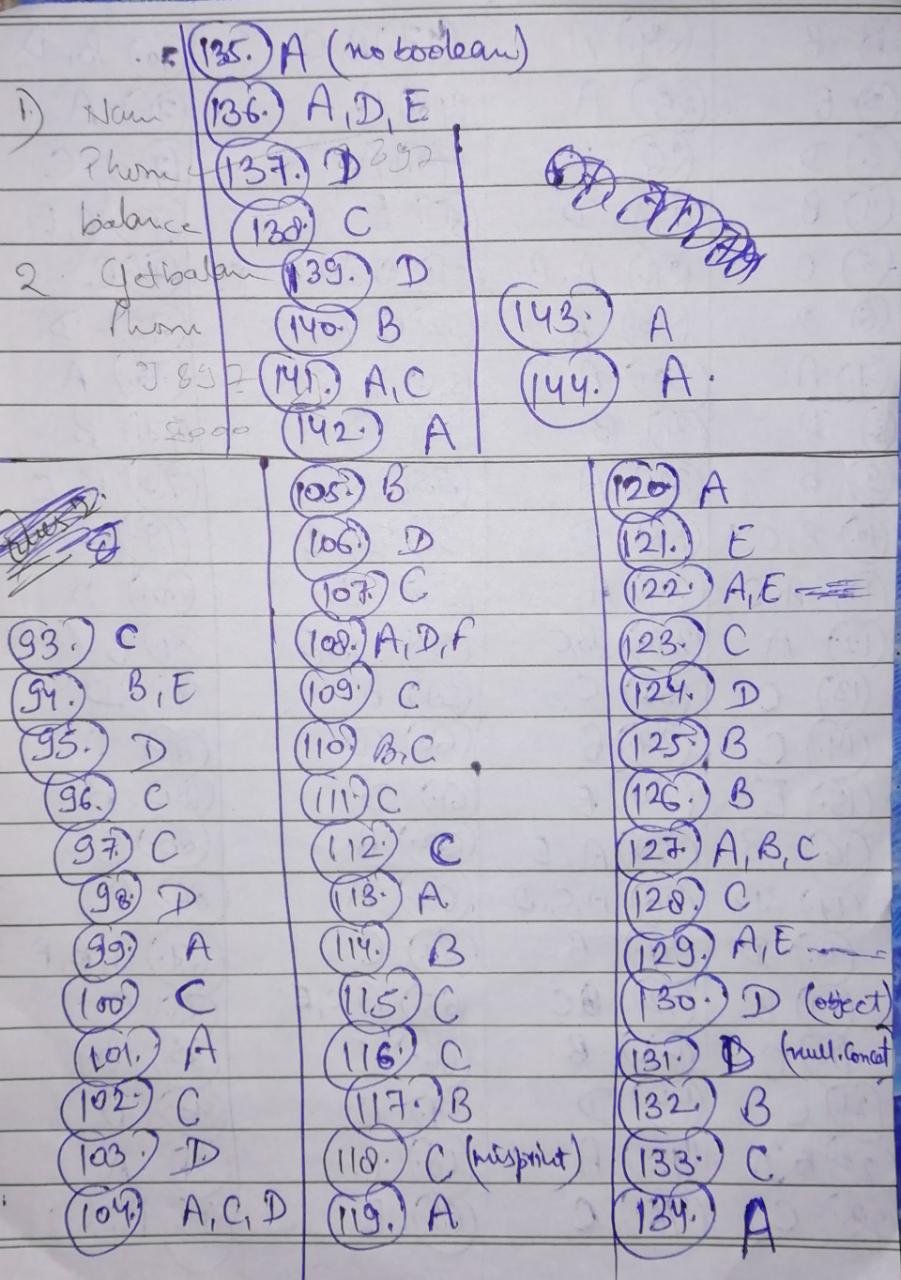 135. A (no boolean)
1) Name 136. A, D, E
Phone 137. D
balance 138. C
2 Getbalan 139. D
Phone 140. B
141. A, C
142. A
143. A
144. A.
93. C
94. B, E
95. D
96. C
97. C
98. D
99. A
100. C
101. A
102. C
103. D
104. A, C, D
105. B
106. D
107. C
108. A, D, F
109. C
110. B, C
111. C
112. C
113. A
114. B
115. C
116. C
117. B
118. C (misprint)
119. A
120. A
121. E
122. A, E
123. C
124. D
125. B
126. B
127. A, B, C
128. C
129. A, E
130. D (object)
131. D (null.Concat
132. B
133. C
134. A